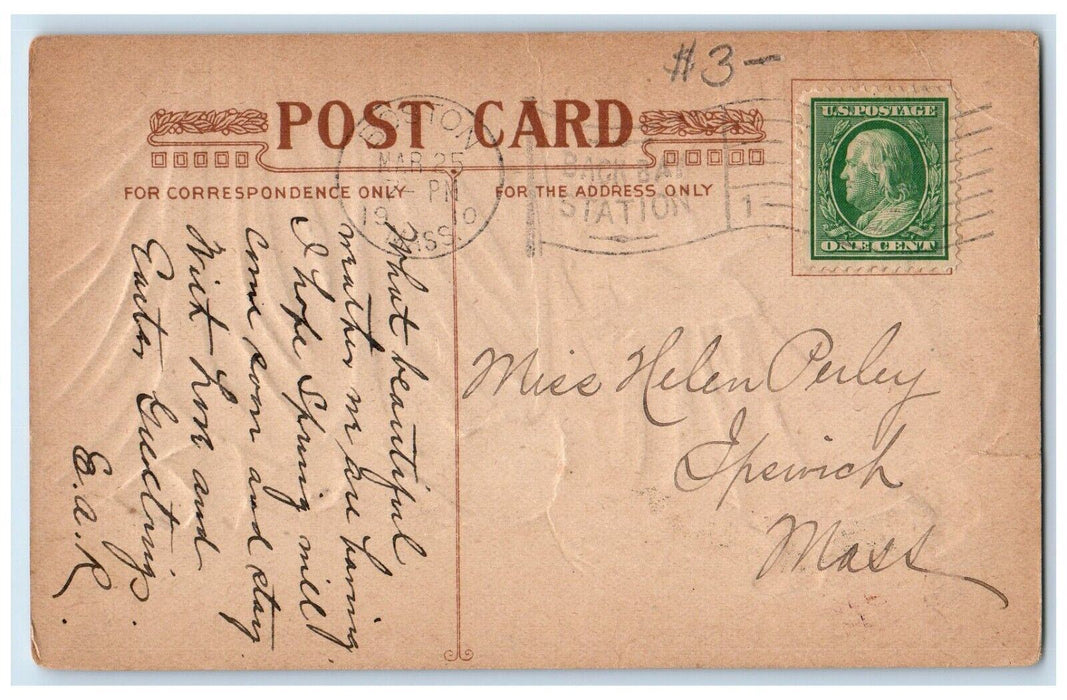 #3-
POST CARD
FOR CORRESPONDENCE ONLY
FOR THE ADDRESS ONLY
BOSTON
MAR 25
PM
19 0
MASS.
BACK BAY
STATION
1
U.S. POSTAGE
ONE CENT
What beautiful
weather we are having
I hope Spring will
come soon and stay
With love and
Easter Greetings
E.A.R.
Miss Helen Perley
Ipswich
Mass